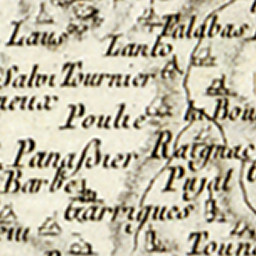 Palabas
Laus
Lanto
Salvi Tournier
neux
Poulie
la Bou
Panaßier
Raignac
Barbe
Pujat
Garrigues
Tourn